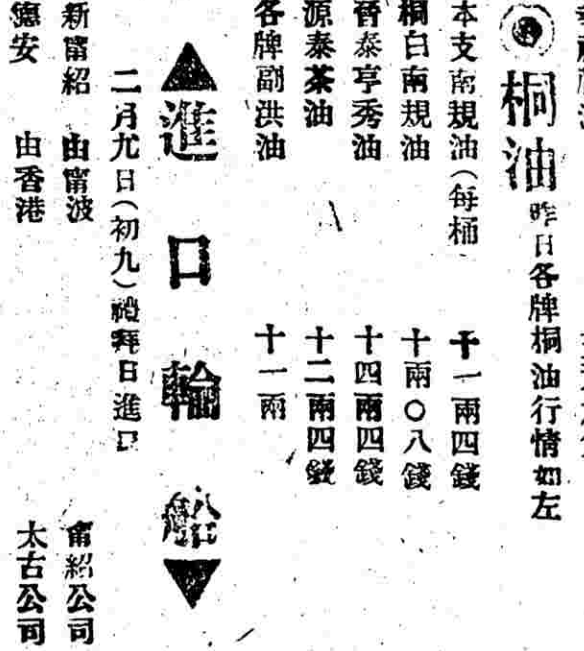 桐油 昨日各牌桐油行情如左
本支南規油(每桶 十一兩四錢
桐白南規油 十兩〇八錢
晉泰亨秀油 十四兩四錢
源泰茶油 十二兩四錢
各牌副洪油 十一兩
▲進口輪船▼
二月九日(初九)禮拜日進口
新甯紹 由甯波 甯紹公司
德安 由香港 太古公司